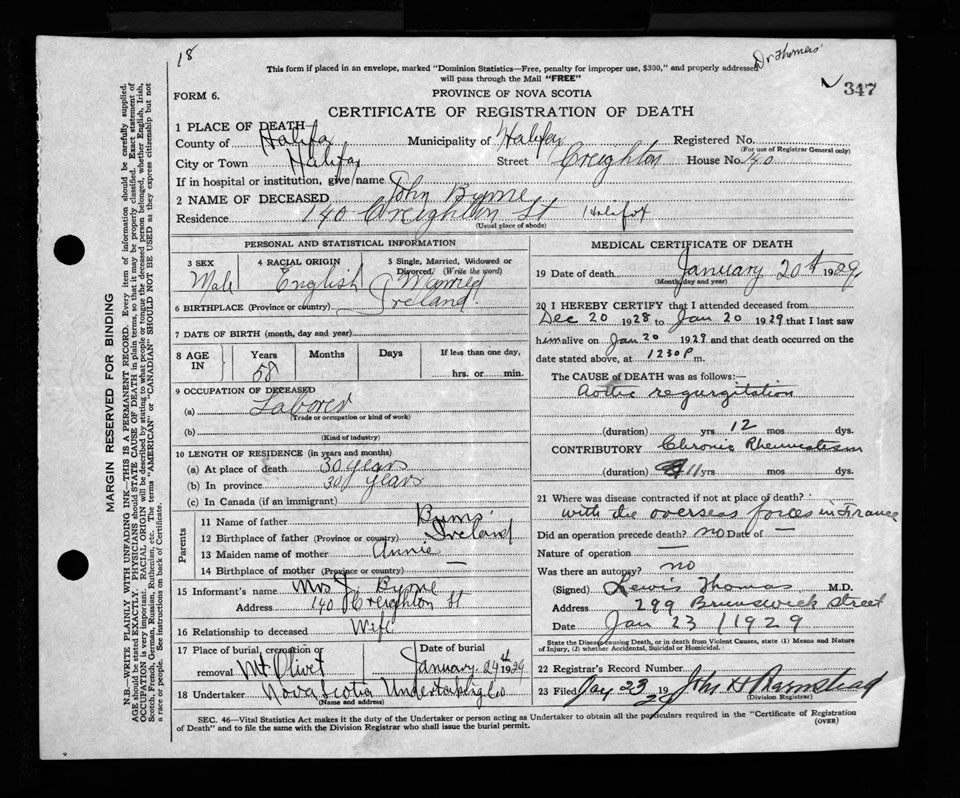 18
Dr Thomas'
This form if placed in an envelope, marked "Dominion Statistics—Free, penalty for improper use, $300," and properly addressed
will pass through the Mail "FREE"
347
FORM 6.
PROVINCE OF NOVA SCOTIA
CERTIFICATE OF REGISTRATION OF DEATH
1 PLACE OF DEATH
County of Halifax Municipality of Halifax Registered No.
(For use of Registrar General only)
City or Town Halifax Street Creighton House No. 140
If in hospital or institution, give name
2 NAME OF DECEASED John Byrne
Residence 140 Creighton St Halifax
(Usual place of abode)
PERSONAL AND STATISTICAL INFORMATION
3 SEX 4 RACIAL ORIGIN 5 Single, Married, Widowed or
Divorced, (Write the word)
Male English Married
6 BIRTHPLACE (Province or country) Ireland
7 DATE OF BIRTH (month, day and year)
8 AGE IN Years Months Days If less than one day,
58 hrs. or min.
9 OCCUPATION OF DECEASED
(a) Laborer
(Trade or occupation or kind of work)
(b)
(Kind of industry)
10 LENGTH OF RESIDENCE (in years and months)
(a) At place of death 30 years
(b) In province 30 years
(c) In Canada (if an immigrant)
Parents
11 Name of father Byrns
12 Birthplace of father (Province or country) Ireland
13 Maiden name of mother Annie
14 Birthplace of mother (Province or country) —
15 Informant's name Mrs J. Byrne
Address 140 Creighton St
16 Relationship to deceased Wife
17 Place of burial, cremation or removal Mt Olivet
Date of burial January 24th 1929
18 Undertaker Nova Scotia Undertaking Co
(Name and address)
MEDICAL CERTIFICATE OF DEATH
19 Date of death January 20th 1929.
(Month, day and year)
20 I HEREBY CERTIFY that I attended deceased from
Dec 20 1928 to Jan 20 1929 that I last saw
him alive on Jan 20 1929 and that death occurred on the
date stated above, at 1230 P m.
The CAUSE OF DEATH was as follows:—
Aortic regurgitation
(duration) yrs 12 mos dys.
CONTRIBUTORY Chronic Rheumatism
(duration) 11 yrs mos dys.
21 Where was disease contracted if not at place of death?
with the overseas forces in France
Did an operation precede death? no Date of —
Nature of operation —
Was there an autopsy? no
(Signed) Lewis Thomas M.D.
Address 299 Brunswick Street
Date Jan 23 / 1929
State the Disease causing Death, or in death from Violent Causes, state (1) Means and Nature
of Injury, (2) whether Accidental, Suicidal or Homicidal.
22 Registrar's Record Number
23 Filed Jay 23 19 29
(Division Registrar)
SEC. 46—Vital Statistics Act makes it the duty of the Undertaker or person acting as Undertaker to obtain all the particulars required in the "Certificate of Registration
of Death" and to file the same with the Division Registrar who shall issue the burial permit.
(OVER)
MARGIN RESERVED FOR BINDING
N.B.—WRITE PLAINLY WITH UNFADING INK—THIS IS A PERMANENT RECORD. Every item of information should be carefully supplied.
AGE should be stated EXACTLY. PHYSICIANS should STATE CAUSE OF DEATH in plain terms, so that it may be properly classified. Exact statement of
OCCUPATION is very important. RACIAL ORIGIN will be described by stating to what people or tongue the deceased person belonged, whether English, Irish,
Scotch, French, German, Russian, Ruthenian, etc. The terms "AMERICAN" or "CANADIAN" SHOULD NOT BE USED as they express citizenship but not
a race or people. See instructions on back of Certificate.